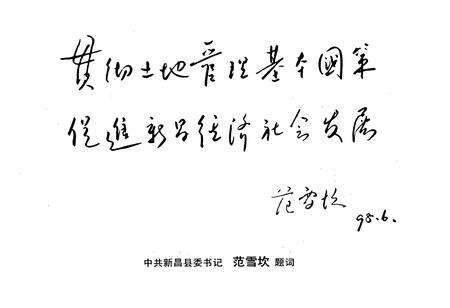 贯彻土地管理基本國策
促進新昌经济社会发展
范雪坎
98.6.
中共新昌县委书记 范雪坎 题词